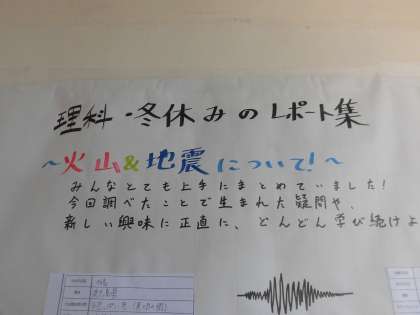 理科・冬休みのレポート集
～火山&地震について!～
みんなとても上手にまとめていました!
今回調べたことで生まれた疑問や、
新しい興味に正直に、どんどん学び続けよ